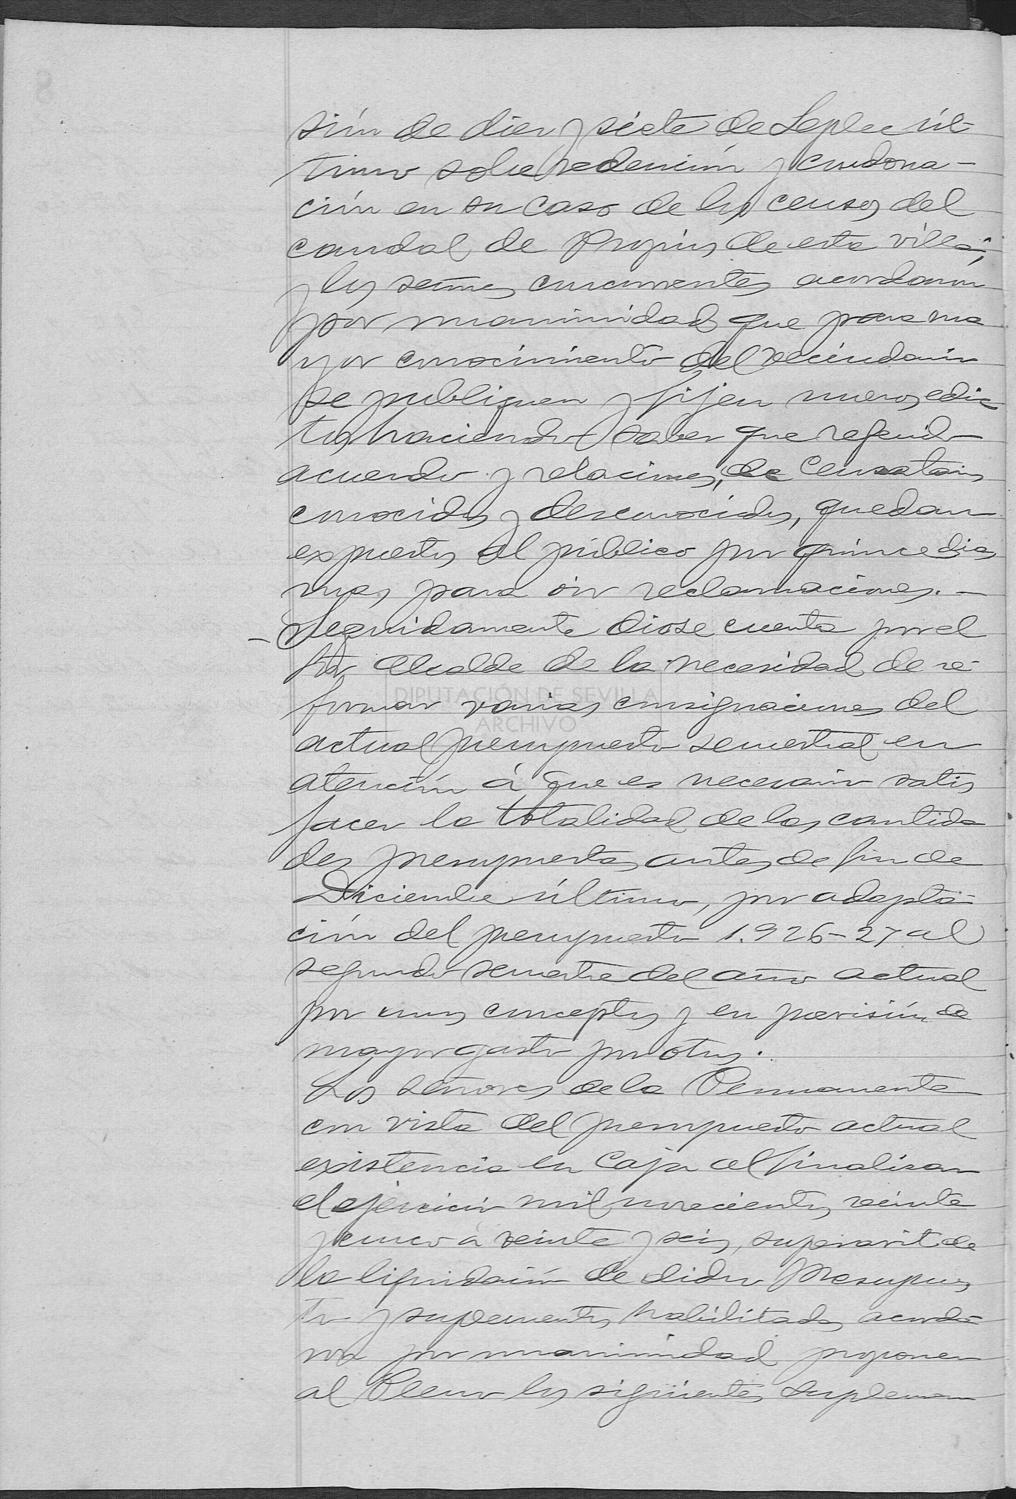 sión de diez y siete de Sepbre úl-
timo sobre redención y condona-
ción en su caso de los censos del
caudal de Propios de esta villa;
y los señores concurrentes acordaron
por unanimidad que para ma
yor conocimiento del vecindario
se publiquen y fijen nuevos edic
tos haciendo saber que referido
acuerdo y relaciones, de censatarios
conocidos y desconocidos, quedan
expuestos al público por quince dias
mas para oir reclamaciones. -
- Seguidamente diose cuenta por el
Sr Alcalde de la necesidad de re-
formar varias consignaciones del
DIPUTACIÓN DE SEVILLA
ARCHIVO
actual presupuesto semestral en
atención á que es necesario satis
facer la totalidad de las cantida
des presupuestas antes de fin de
Diciembre último, por adapta-
ción del presupuesto 1.926-27 al
segundo semestre del año actual
por unos conceptos y en previsión de
mayor gasto por otros.
Los señores de la Permanente
con vista del presupuesto actual
existencia en Caja al finalizar
el ejercicio mil novecientos veinte
y cinco á veinte y seis, superavit de
la liquidación de dicho Presupues
to y suplementos habilitados acorda-
ron por unanimidad proponer
al Pleno los siguientes suplemen